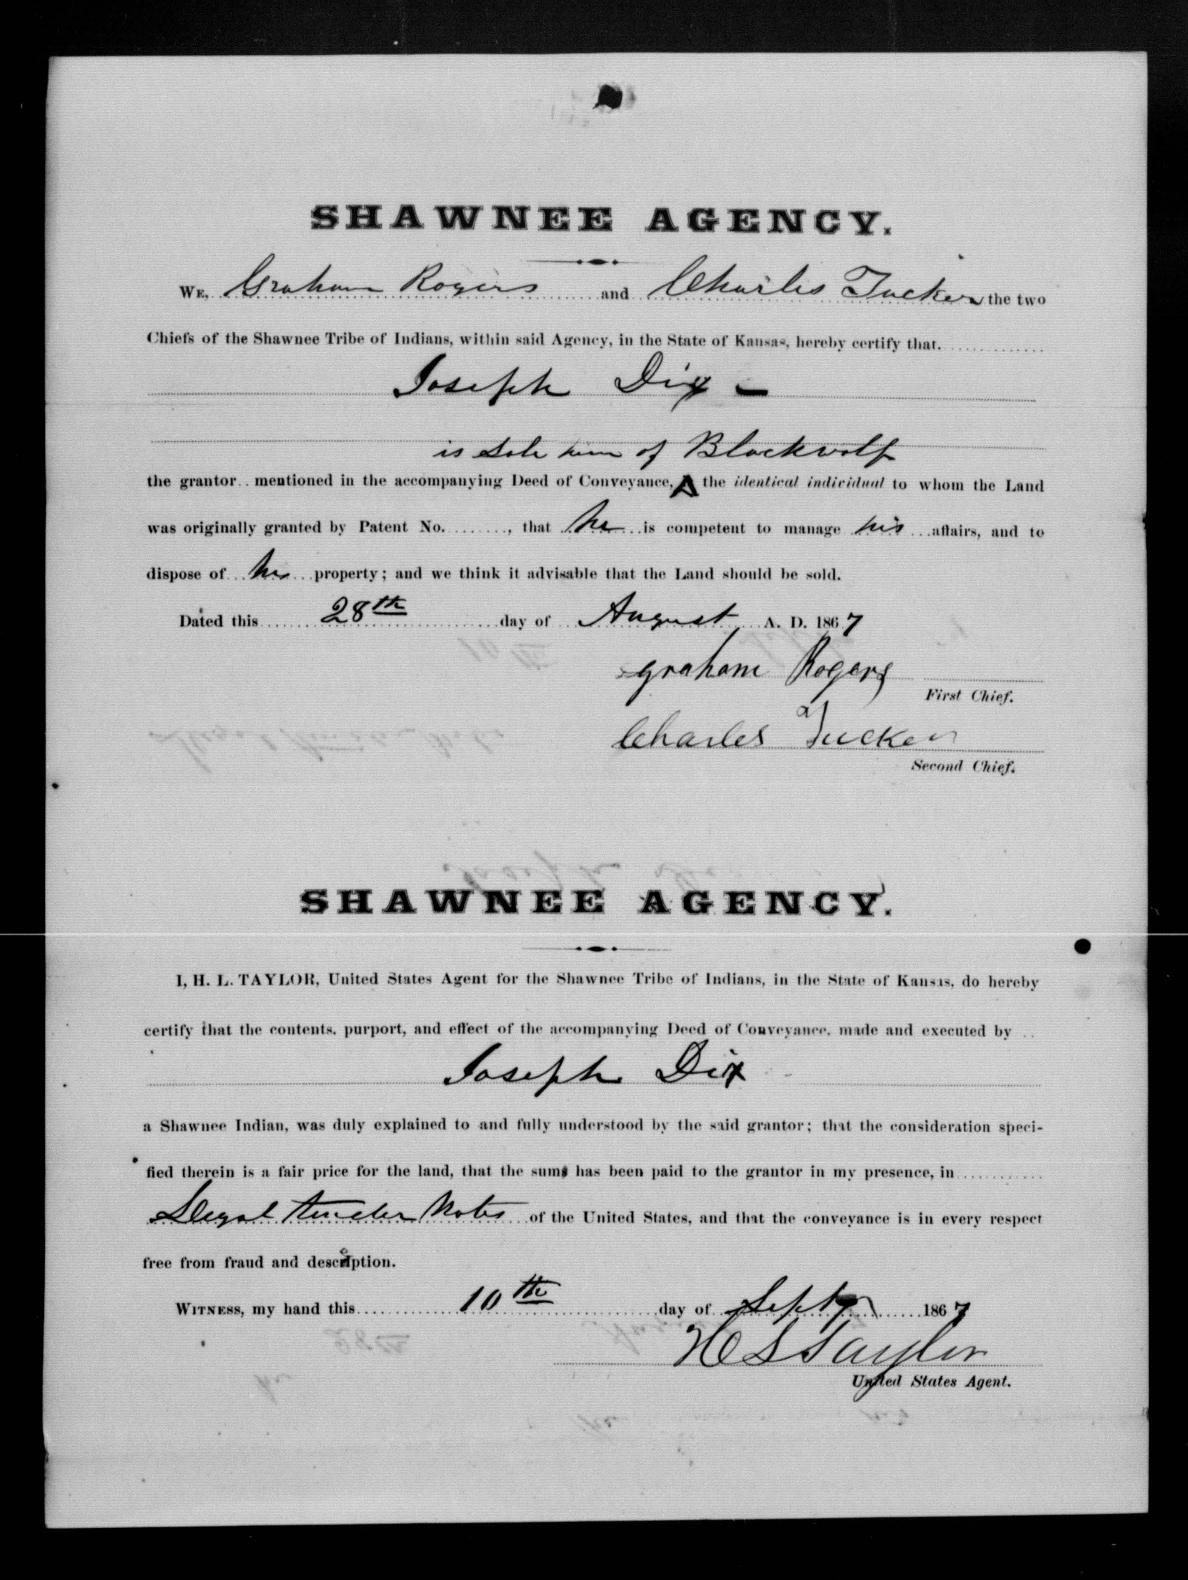 SHAWNEE AGENCY.
WE, Graham Rogers and Charles Tucker the two
Chiefs of the Shawnee Tribe of Indians, within said Agency, in the State of Kansas, hereby certify that
Joseph Dix
is sole heir of Blackwolf
the grantor mentioned in the accompanying Deed of Conveyance, the identical individual to whom the Land
was originally granted by Patent No. , that he is competent to manage his affairs, and to
dispose of his property; and we think it advisable that the Land should be sold.
Dated this 28th day of August A. D. 1867
graham Rogers
First Chief.
Charles Tucker
Second Chief.
SHAWNEE AGENCY.
I, H. L. TAYLOR, United States Agent for the Shawnee Tribe of Indians, in the State of Kansas, do hereby
certify that the contents, purport, and effect of the accompanying Deed of Conveyance, made and executed by
Joseph Dix
a Shawnee Indian, was duly explained to and fully understood by the said grantor; that the consideration speci-
fied therein is a fair price for the land, that the sum has been paid to the grantor in my presence, in
Legal tender Notes of the United States, and that the conveyance is in every respect
free from fraud and description.
WITNESS, my hand this 10th day of Septr 1867
H L Taylor
United States Agent.